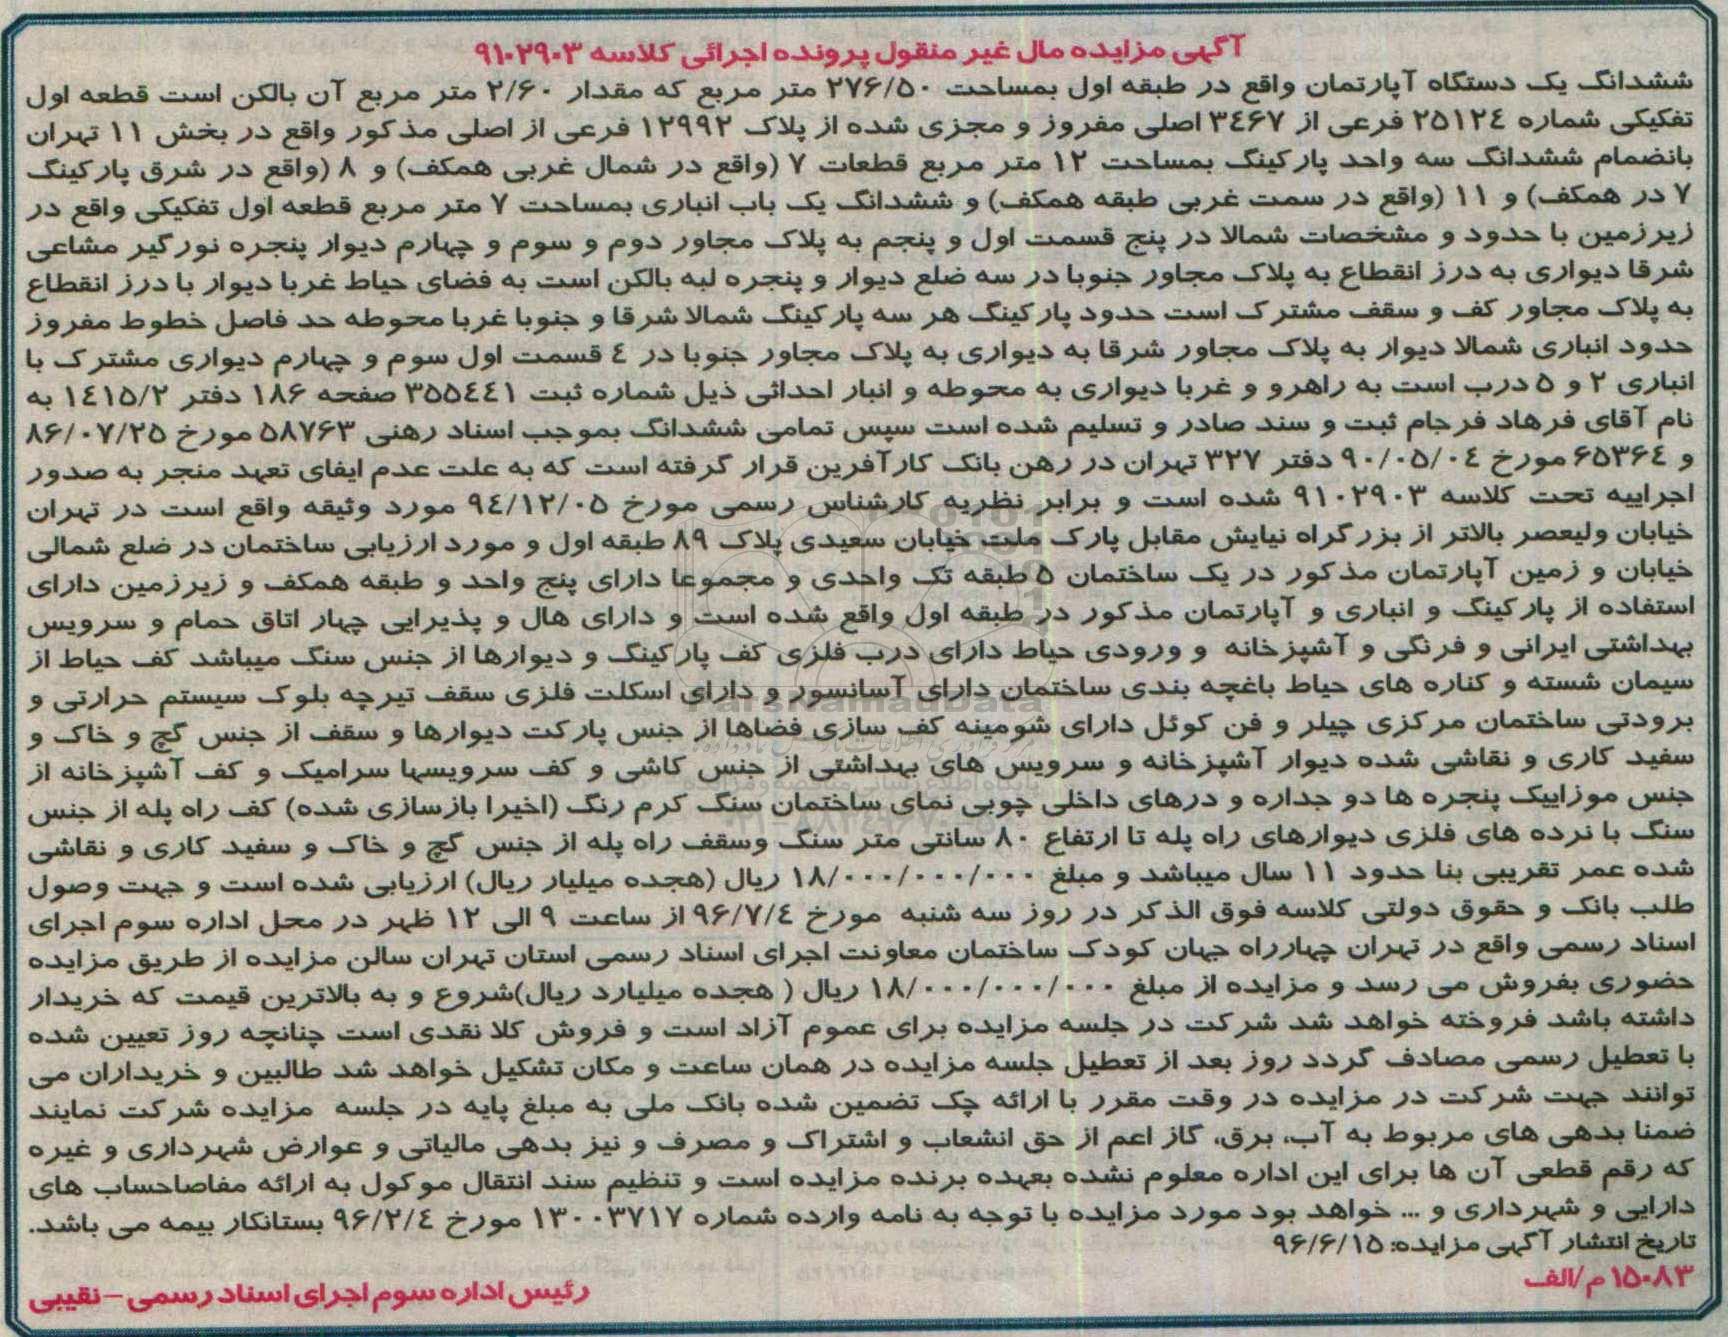 آگهی مزایده مال غیر منقول پرونده اجرائی کلاسه ۹۱۰۲۹۰۳
ششدانگ یک دستگاه آپارتمان واقع در طبقه اول بمساحت ۲۷۶/۵۰ متر مربع که مقدار ۲/۶۰ متر مربع آن بالکن است قطعه اول
تفکیکی شماره ۲۵۱۲٤ فرعی از ۳٤۶۷ اصلی مفروز و مجزی شده از پلاک ۱۲۹۹۲ فرعی از اصلی مذکور واقع در بخش ۱۱ تهران
بانضمام ششدانگ سه واحد پارکینگ بمساحت ۱۲ متر مربع قطعات ۷ (واقع در شمال غربی همکف) و ۸ (واقع در شرق پارکینگ
۷ در همکف) و ۱۱ (واقع در سمت غربی طبقه همکف) و ششدانگ یک باب انباری بمساحت ۷ متر مربع قطعه اول تفکیکی واقع در
زیرزمین با حدود و مشخصات شمالا در پنج قسمت اول و پنجم به پلاک مجاور دوم و سوم و چهارم دیوار پنجره نورگیر مشاعی
شرقا دیواری به درز انقطاع به پلاک مجاور جنوبا در سه ضلع دیوار و پنجره لبه بالکن است به فضای حیاط غربا دیوار با درز انقطاع
به پلاک مجاور کف و سقف مشترک است حدود پارکینگ هر سه پارکینگ شمالا شرقا و جنوبا غربا محوطه حد فاصل خطوط مفروز
حدود انباری شمالا دیوار به پلاک مجاور شرقا به دیواری به پلاک مجاور جنوبا در ٤ قسمت اول سوم و چهارم دیواری مشترک با
انباری ۲ و ۵ درب است به راهرو و غربا دیواری به محوطه و انبار احداثی ذیل شماره ثبت ۳۵۵٤٤۱ صفحه ۱۸۶ دفتر ۱٤۱۵/۲ به
نام آقای فرهاد فرجام ثبت و سند صادر و تسلیم شده است سپس تمامی ششدانگ بموجب اسناد رهنی ۵۸۷۶۳ مورخ ۸۶/۰۷/۲۵
و ۶۵۳۶٤ مورخ ۹۰/۰۵/۰٤ دفتر ۳۲۷ تهران در رهن بانک کارآفرین قرار گرفته است که به علت عدم ایفای تعهد منجر به صدور
اجراییه تحت کلاسه ۹۱۰۲۹۰۳ شده است و برابر نظریه کارشناس رسمی مورخ ۹٤/۱۲/۰۵ مورد وثیقه واقع است در تهران
خیابان ولیعصر بالاتر از بزرگراه نیایش مقابل پارک ملت خیابان سعیدی پلاک ۸۹ طبقه اول و مورد ارزیابی ساختمان در ضلع شمالی
خیابان و زمین آپارتمان مذکور در یک ساختمان ۵ طبقه تک واحدی و مجموعا دارای پنج واحد و طبقه همکف و زیرزمین دارای
استفاده از پارکینگ و انباری و آپارتمان مذکور در طبقه اول واقع شده است و دارای هال و پذیرایی چهار اتاق حمام و سرویس
بهداشتی ایرانی و فرنگی و آشپزخانه و ورودی حیاط دارای درب فلزی کف پارکینگ و دیوارها از جنس سنگ میباشد کف حیاط از
سیمان شسته و کناره های حیاط باغچه بندی ساختمان دارای آسانسور و دارای اسکلت فلزی سقف تیرچه بلوک سیستم حرارتی و
برودتی ساختمان مرکزی چیلر و فن کوئل دارای شومینه کف سازی فضاها از جنس پارکت دیوارها و سقف از جنس گچ و خاک و
سفید کاری و نقاشی شده دیوار آشپزخانه و سرویس های بهداشتی از جنس کاشی و کف سرویسها سرامیک و کف آشپزخانه از
جنس موزاییک پنجره ها دو جداره و درهای داخلی چوبی نمای ساختمان سنگ کرم رنگ (اخیرا بازسازی شده) کف راه پله از جنس
سنگ با نرده های فلزی دیوارهای راه پله تا ارتفاع ۸۰ سانتی متر سنگ وسقف راه پله از جنس گچ و خاک و سفید کاری و نقاشی
شده عمر تقریبی بنا حدود ۱۱ سال میباشد و مبلغ ۱۸/۰۰۰/۰۰۰/۰۰۰ ریال (هجده میلیار ریال) ارزیابی شده است و جهت وصول
طلب بانک و حقوق دولتی کلاسه فوق الذکر در روز سه شنبه مورخ ۹۶/۷/٤ از ساعت ۹ الی ۱۲ ظهر در محل اداره سوم اجرای
اسناد رسمی واقع در تهران چهارراه جهان کودک ساختمان معاونت اجرای اسناد رسمی استان تهران سالن مزایده از طریق مزایده
حضوری بفروش می رسد و مزایده از مبلغ ۱۸/۰۰۰/۰۰۰/۰۰۰ ریال ( هجده میلیارد ریال)شروع و به بالاترین قیمت که خریدار
داشته باشد فروخته خواهد شد شرکت در جلسه مزایده برای عموم آزاد است و فروش کلا نقدی است چنانچه روز تعیین شده
با تعطیل رسمی مصادف گردد روز بعد از تعطیل جلسه مزایده در همان ساعت و مکان تشکیل خواهد شد طالبین و خریداران می
توانند جهت شرکت در مزایده در وقت مقرر با ارائه چک تضمین شده بانک ملی به مبلغ پایه در جلسه مزایده شرکت نمایند
ضمنا بدهی های مربوط به آب، برق، گاز اعم از حق انشعاب و اشتراک و مصرف و نیز بدهی مالیاتی و عوارض شهرداری و غیره
که رقم قطعی آن ها برای این اداره معلوم نشده بعهده برنده مزایده است و تنظیم سند انتقال موکول به ارائه مفاصاحساب های
دارایی و شهرداری و ... خواهد بود مورد مزایده با توجه به نامه وارده شماره ۱۳۰۰۳۷۱۷ مورخ ۹۶/۲/٤ بستانکار بیمه می باشد.
تاریخ انتشار آگهی مزایده: ۹۶/۶/۱۵
۱۵۰۸۳ م/الف
رئیس اداره سوم اجرای اسناد رسمی – نقیبی
ParsNamadData